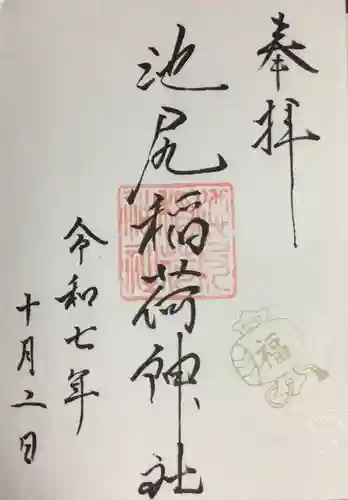 奉拝
池尻稲荷神社
令和七年
十月二日
福